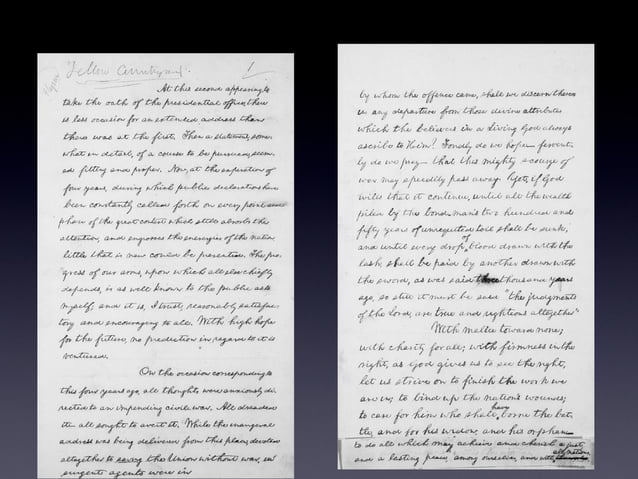 Fellow Countrymen. 1
At this second appearing to
take the oath of the presidential office, there
is less occasion for an extended address than
there was at the first. Then a statement, some-
what in detail, of a course to be pursued, seem-
ed fitting and proper. Now, at the expiration of
four years, during which public declarations have
been constantly called forth on every point and
phase of the great contest which still absorbs the
attention, and engrosses the energies of the nation,
little that is new could be presented. The pro-
gress of our arms, upon which all else chiefly
depends, is as well known to the public as to
myself; and it is, I trust, reasonably satisfac-
tory and encouraging to all. With high hope
for the future, no prediction in regard to it is
ventured.
On the occasion corresponding to
this four years ago, all thoughts were anxiously di-
rected to an impending civil war. All dreaded
it all sought to avert it. While the inaugeral
address was being delivered from this place, devoted
altogether to saving the Union without war, in-
surgent agents were in
by whom the offence came, shall we discern therein
any departure from those divine attributes
which the believers in a Living God always
ascribe to Him? Fondly do we hope fervent-
ly do we pray that this mighty scourge of
war may speedily pass away. Yet, if God
wills that it continue, until all the wealth
piled by the bond-man's two hundred and
fifty years of unrequited toil shall be sunk,
and until every drop of blood drawn with the
lash, shall be paid by another drawn with
the sword, as was said three thousand years
ago, so still it must be said "the judgments
of the Lord, are true and righteous altogether"
With malice toward none;
with charity for all; with firmness in the
right, as God gives us to see the right,
let us strive on to finish the work we
are in; to bind up the nation's wounds;
to care for him who shall have borne the bat-
tle, and for his widow, and his orphan
to do all which may achieve and cherish a just,
and a lasting peace, among ourselves, and with all nations.